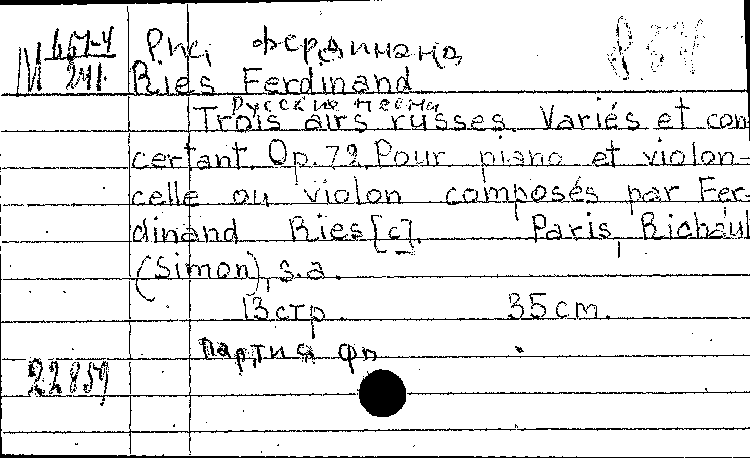 Рис, Фердинанд
M 667-4/241
Ries Ferdinand
Русские песни
Trois airs russes. Variés et con
certant. Op. 72. Pour piano et violon-
celle ou violon composés par Fer-
dinand Ries [c]. Paris, Richault
(Simon), s.a.
13 стр. 35 cm.
партия фп
22859